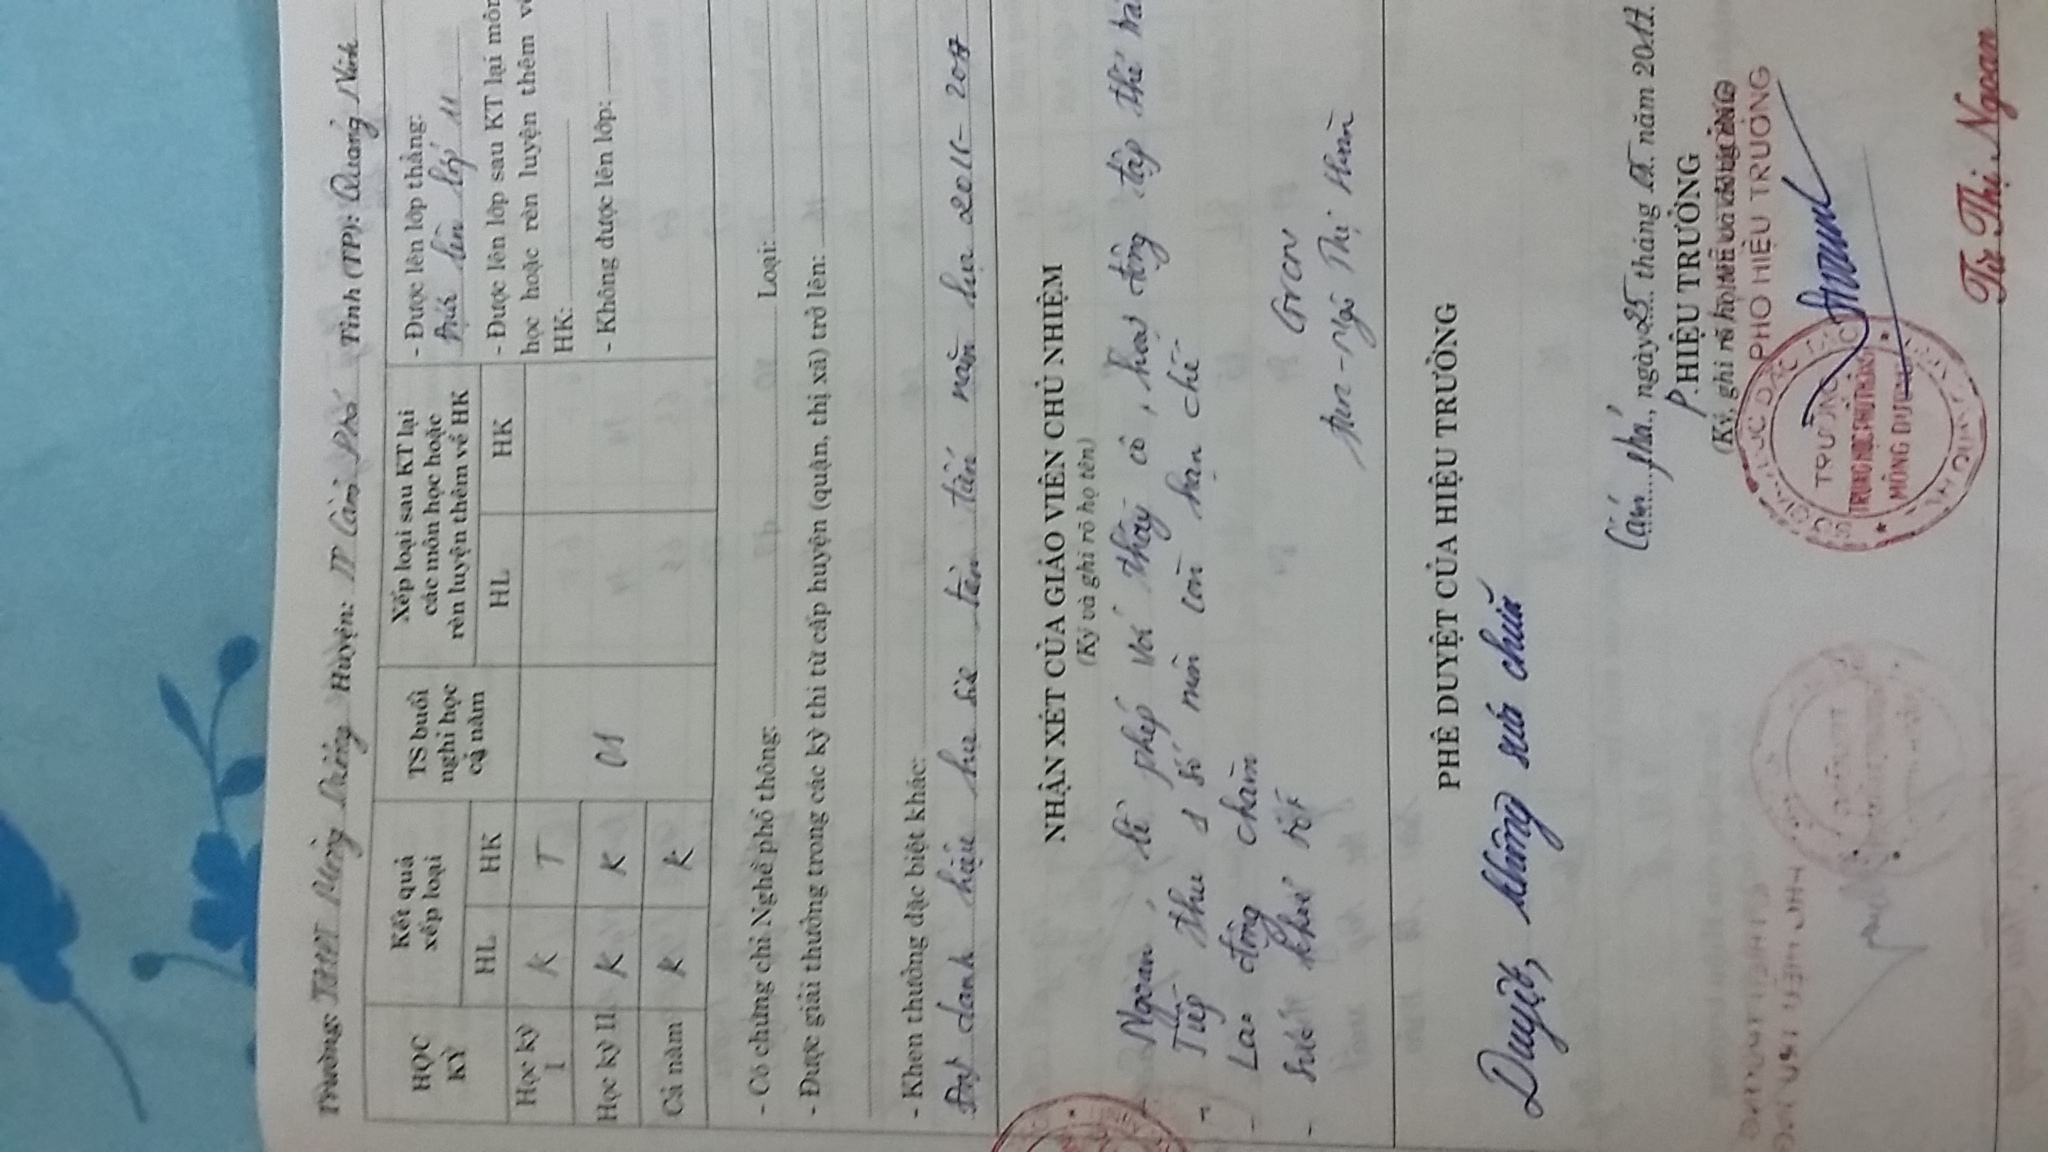 Trường: THPT Mông Dương Huyện: TP Cẩm Phả Tỉnh (TP): Quảng Ninh
HỌC KỲ
Kết quả xếp loại
TS buổi nghỉ học cả năm
Xếp loại sau KT lại các môn học hoặc rèn luyện thêm về HK
HL HK HL HK
Học kỳ I K T
Học kỳ II K K 01
Cả năm K K
- Được lên lớp thẳng:
Được lên lớp 11
- Được lên lớp sau KT lại môn
học hoặc rèn luyện thêm về
HK:
- Không được lên lớp:
- Có chứng chỉ Nghề phổ thông: Loại:
- Được giải thưởng trong các kỳ thi từ cấp huyện (quận, thị xã) trở lên:
- Khen thưởng đặc biệt khác:
Đạt danh hiệu học sinh tiên tiến năm học 2016-2017
NHẬN XÉT CỦA GIÁO VIÊN CHỦ NHIỆM
(Ký và ghi rõ họ tên)
- Ngoan, lễ phép với thầy cô, hoạt động tập thể
- Tiếp thu 1 số môn còn hạn chế
- Lao động chăm
- Sức khoẻ tốt
GVCN
Ngô Thị
PHÊ DUYỆT CỦA HIỆU TRƯỞNG
Duyệt, không sửa chữa
Cẩm phả, ngày 25 tháng 05 năm 2017.
P.HIỆU TRƯỞNG
(Ký, ghi rõ họ tên và đóng dấu)
PHÓ HIỆU TRƯỞNG
TRƯỜNG
TRUNG HỌC PHỔ THÔNG
MÔNG DƯƠNG
Từ Thị Ngoan